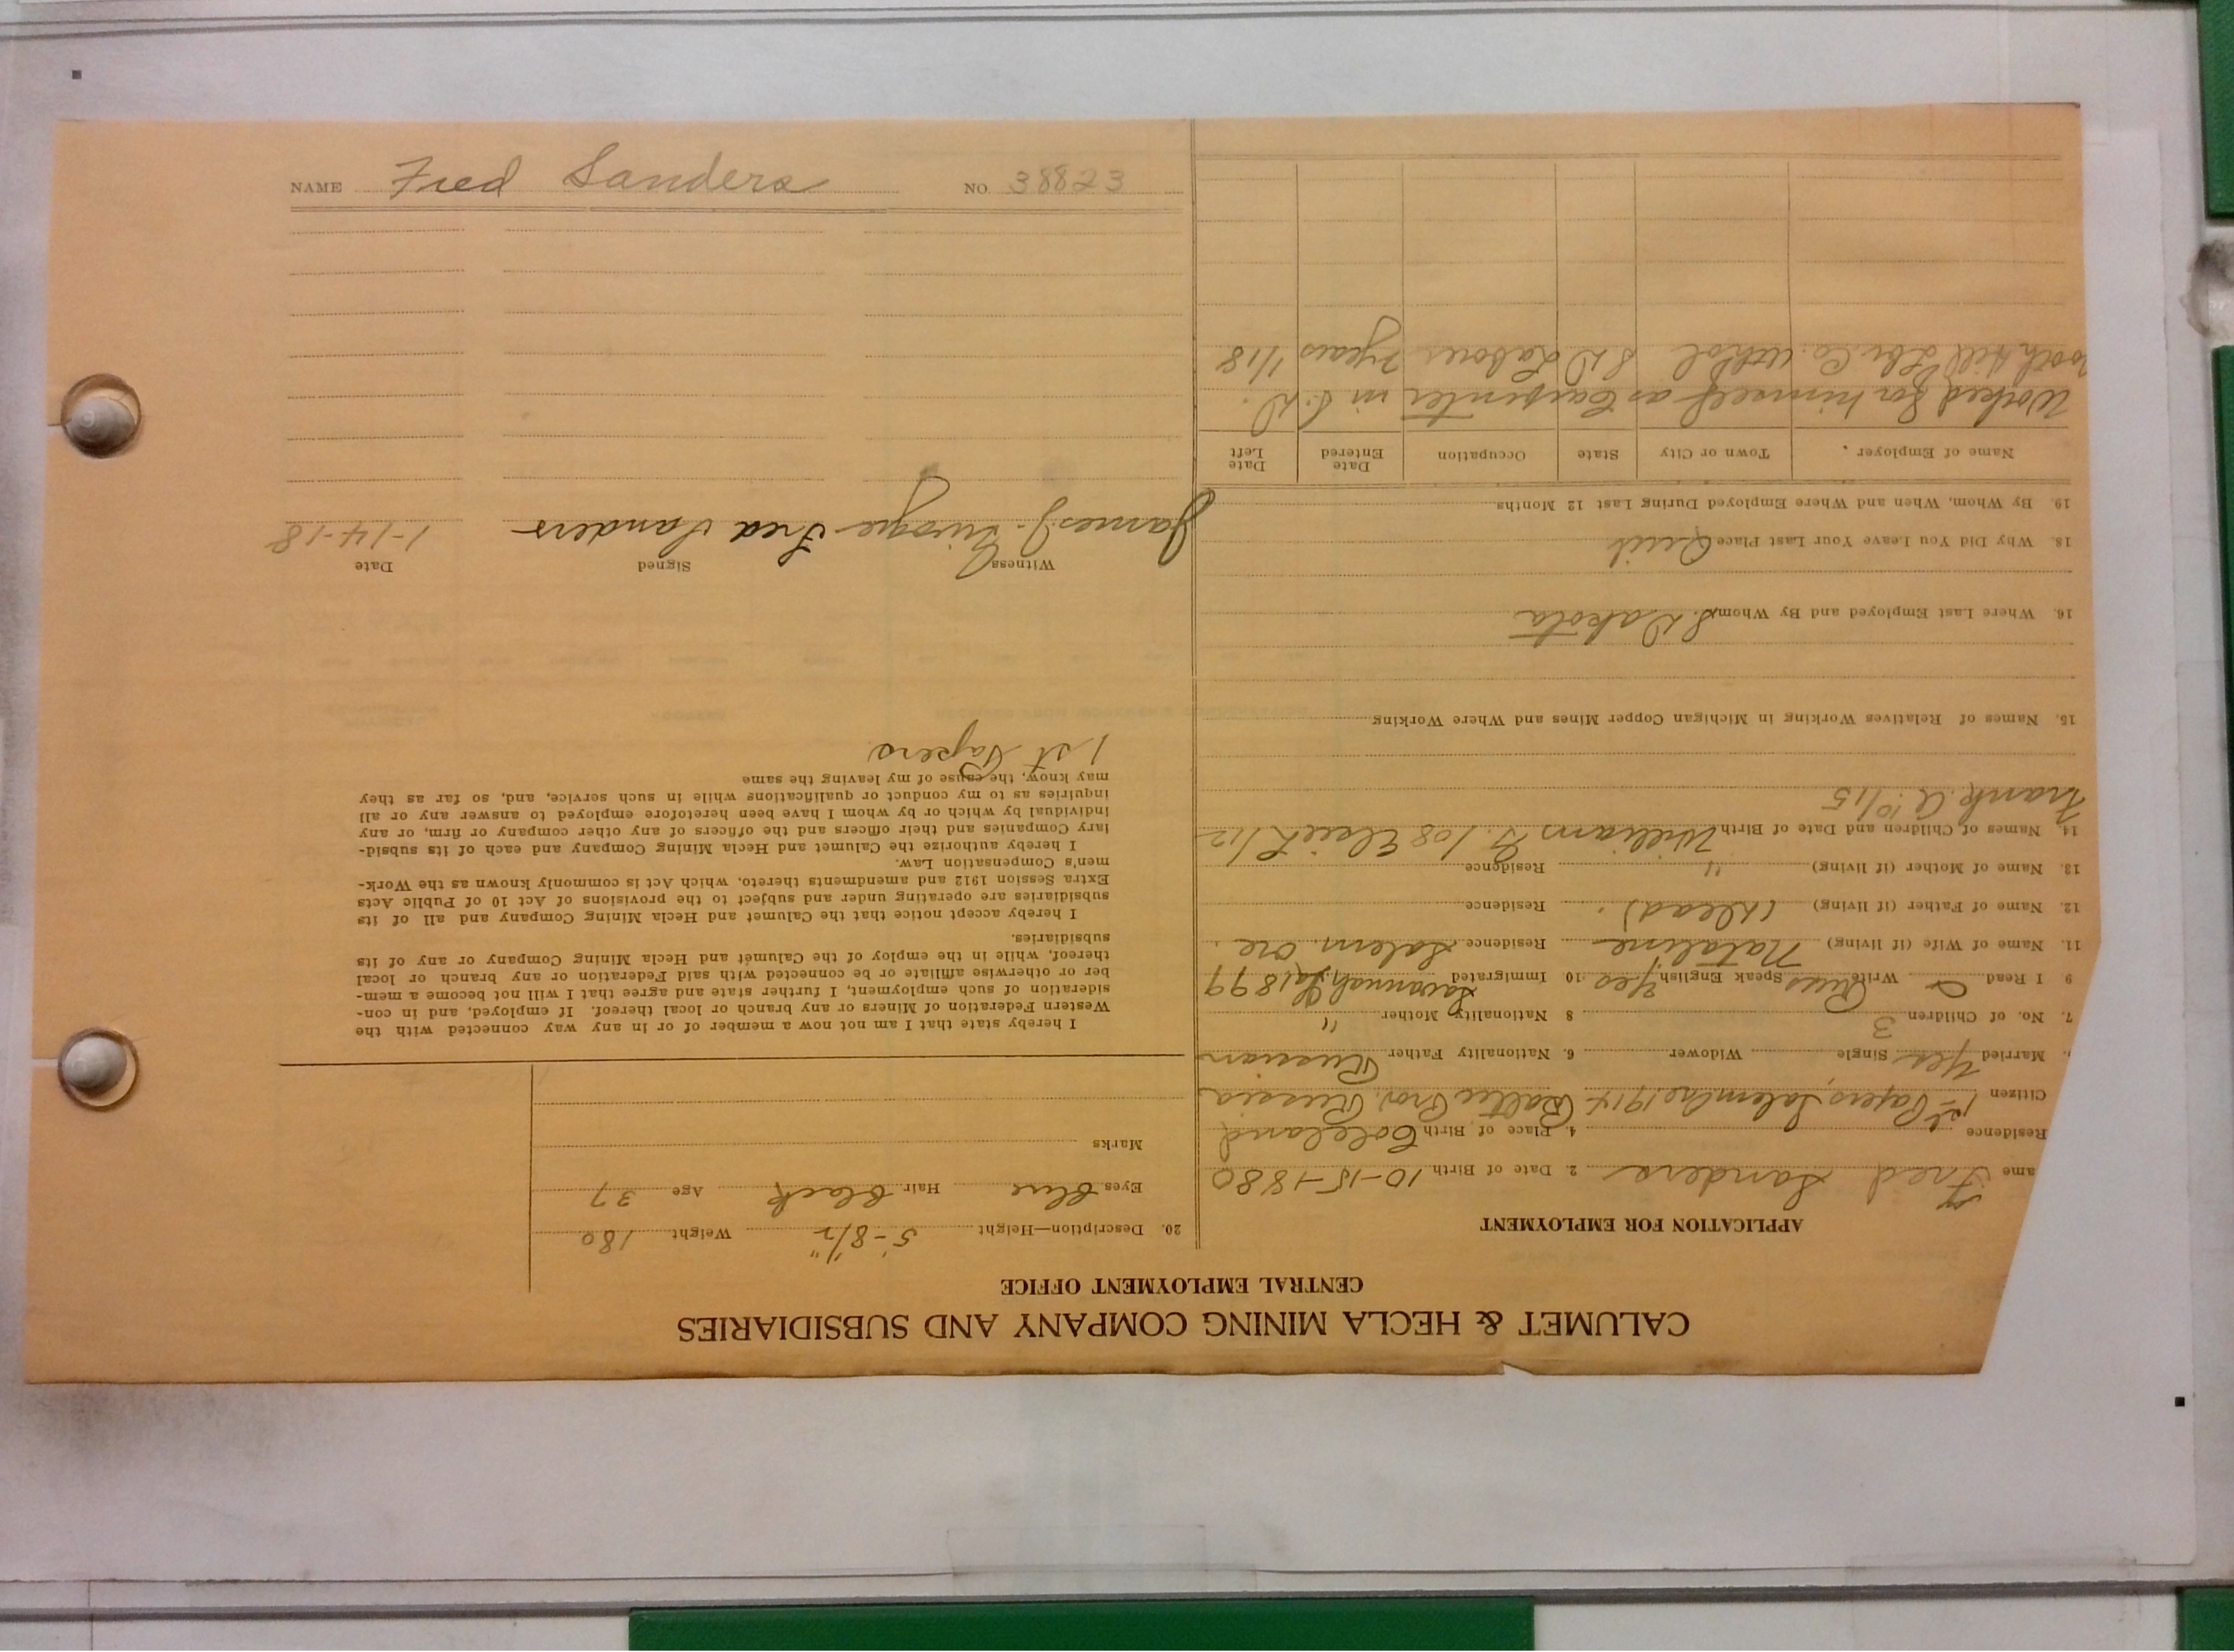 CALUMET & HECLA MINING COMPANY AND SUBSIDIARIES
CENTRAL EMPLOYMENT OFFICE
APPLICATION FOR EMPLOYMENT
ame Fred Sanders 2. Date of Birth 10-15-1880
Residence 4. Place of Birth
Citizen 1st Papers, Salem Ore 1914 Baltic Prov. Russia
Married Yes Single Widower 6. Nationality Father Russian
7. No. of Children 3 8 Nationality Mother "
9 I Read Write Russ Speak English Yes 10 Immigrated Savannah Ga 1899
11. Name of Wife (if living) Nataline Residence Salem Ore.
12. Name of Father (if living) (Dead) Residence
13. Name of Mother (if living) " Residence
14. Names of Children and Date of Birth William F. /08 /12
Frank A. 10/15
15. Names of Relatives Working in Michigan Copper Mines and Where Working
16. Where Last Employed and By Whom S. Dakota
18. Why Did You Leave Your Last Place Quit
19. By Whom, When and Where Employed During Last 12 Months
Name of Employer Town or City State Occupation Date Entered Date Left
Worked for himself as Carpenter in S. D.
Hill Lbr. Co. S D Laborer 2 years 1/18
20. Description—Height 5'-8 1/2" Weight 180
Eyes Blue Hair Black Age 37
Marks
I hereby state that I am not now a member of or in any way connected with the
Western Federation of Miners or any branch or local thereof. If employed, and in con-
sideration of such employment, I further state and agree that I will not become a mem-
ber or otherwise affiliate or be connected with said Federation or any branch or local
thereof, while in the employ of the Calumet and Hecla Mining Company or any of its
subsidiaries.
I hereby accept notice that the Calumet and Hecla Mining Company and all of its
subsidiaries are operating under and subject to the provisions of Act 10 of Public Acts
Extra Session 1912 and amendments thereto, which Act is commonly known as the Work-
men's Compensation Law.
I hereby authorize the Calumet and Hecla Mining Company and each of its subsid-
iary Companies and their officers and the officers of any other company or firm, or any
individual by which or by whom I have been heretofore employed to answer any or all
inquiries as to my conduct or qualifications while in such service, and, so far as they
may know, the cause of my leaving the same
1st Papers
Witness Signed Date
James J. Fred Sanders 1-14-18
NAME Fred Sanders NO. 38823